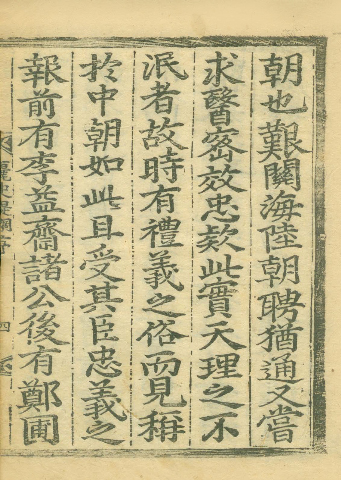 朝也艱關海陸朝聘猶通又嘗
求醫密效忠款此實天理之不
泯者故時有禮義之俗而見稱
於中朝如此且受其臣忠義之
報前有李益齋諸公後有鄭圃
四